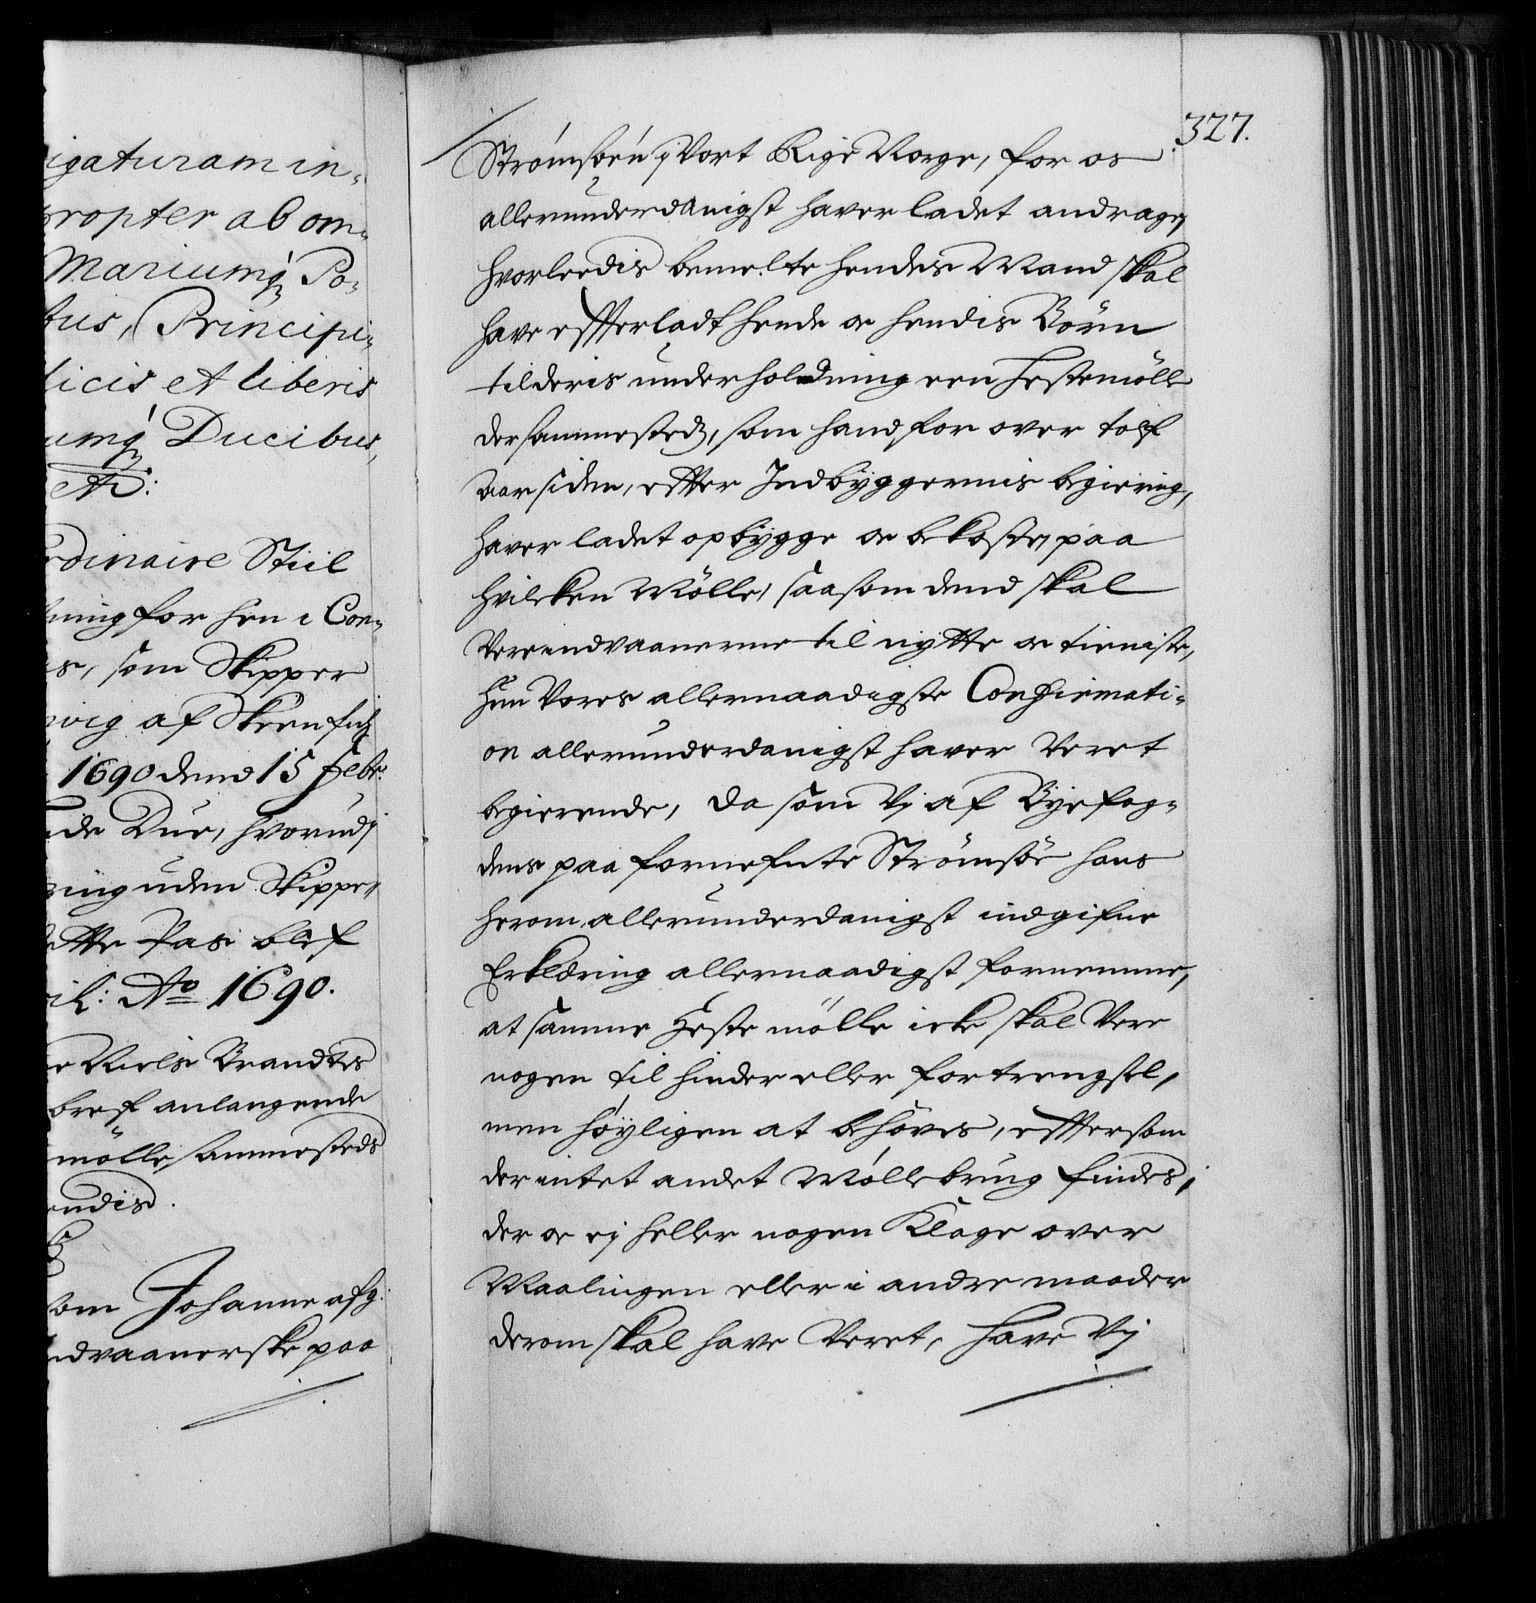 igaturam in-
propter ab om-
Mariumq Po-
tus, Principi-
licis et liberis
umq Ducibus,
etc:
rdinaire Stiil
ning for hen i Con-
s, som Skipper
vig af Skeen
1690 dend 15 Febr:
de Due, hvorudj
ring uden Skipper
dette Pas blef
il: Ao 1690.
e Niels Brandtes
bref anlangende
mølle sammesteds
endis.
om Johanne afg:
ndvaanerske paa
327.
Strømsöen i Vort Rige Norge, for os
allerunderdanigst haver ladet andrage,
hvorleedis bemelte hendes Mand skal
have efterladt hende oc hendis Börn
til deris underholdning een Hestemölle
dersammested, som hand for over tolf
aar siden, efter Indbyggernis begiering,
haver ladet opbygge oc bekoste, paa
hvilcken Mölle, saasom dend skal
Vere indvaanerne til nytte oc tieniste,
hun Vores allernaadigste Confirmati-
on allerunderdanigst haver Veret
begierende, da som Vj af Byefog-
dens paa fornefnte Strømsöe hans
herom allerunderdanigst indgifne
Erklæring allernaadigst fornemme,
at samme Hestemölle icke skal Vere
nogen til hinder eller fortrengsel,
men höyligen at behöves, eftersom
der intet andet Möllebrug findes,
der oc ej heller nogen Klage over
Maalingen eller i andre maader
derom skal have Veret, Have Vj